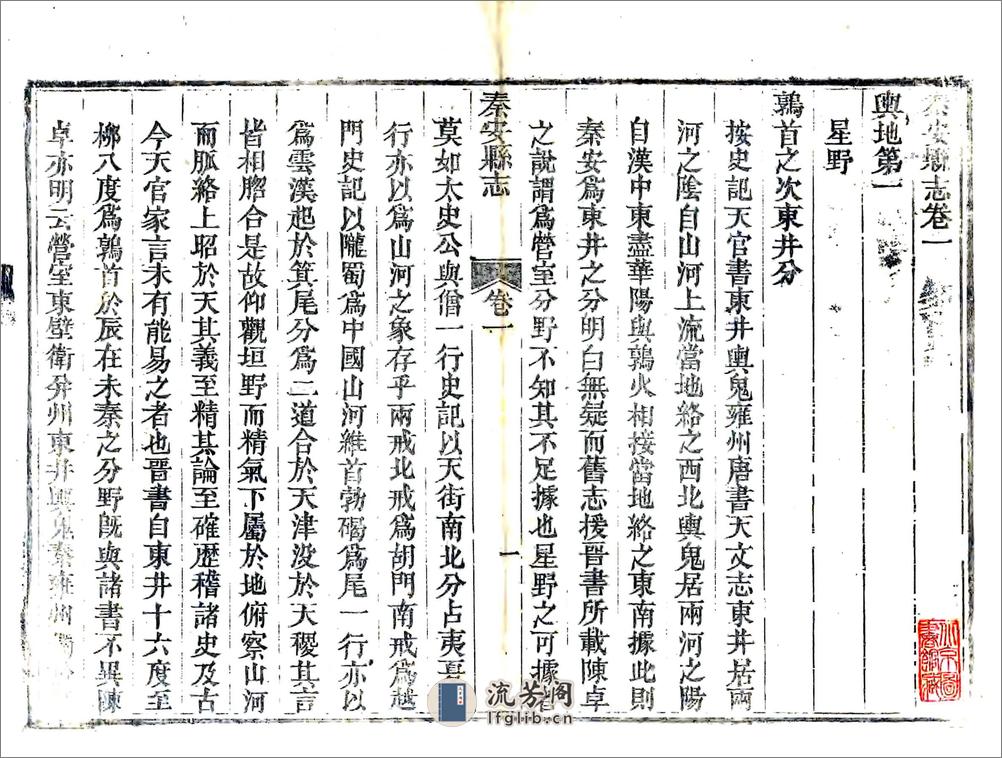 秦安縣志卷一
輿地第一
星野
鶉首之次東井分
按史記天官書東井輿鬼雍州唐書天文志東井居兩
河之陰自山河上流當地絡之西北輿鬼居兩河之陽
自漢中東盡華陽與鶉火相接當地絡之東南據此則
秦安爲東井之分明白無疑而舊志援晉書所載陳卓
之說謂爲營室分野不知其不足據也星野之可據者
秦安縣志
卷一
一
莫如太史公與僧一行史記以天街南北分占夷
行亦以爲山河之象存乎兩戒北戒爲胡門南戒爲越
門史記以隴蜀爲中國山河維首勃碣爲尾一行亦以
爲雲漢起於箕尾分爲二道合於天津没於天稷其言
皆相脗合是故仰觀垣野而精氣下屬於地俯察山河
而脈絡上昭於天其義至精其論至確歷稽諸史及古
今天官家言未有能易之者也晉書自東井十六度至
柳八度爲鶉首於辰在未秦之分野旣與諸書不異陳
卓亦明云營室東壁衛幷州東井輿鬼秦雍州
流芳阁
lfglib.cn